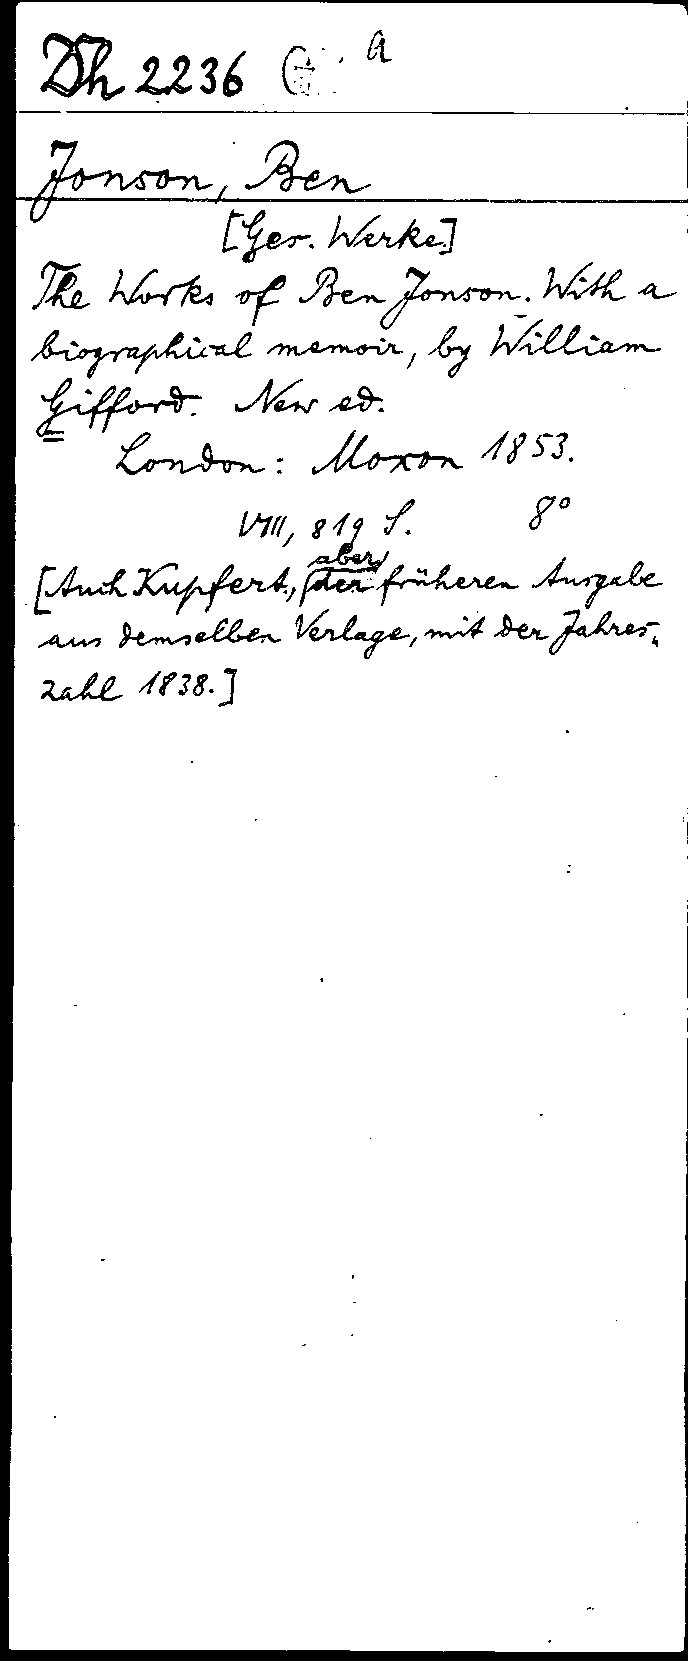 Dh 2236 a
Jonson, Ben
[Ges. Werke]
The Works of Ben Jonson. With a
biographical memoir, by William
Gifford. New ed.
London: Moxon 1853.
VIII, 819 S. 8°
aber
[Auch Kupfert., der früheren Ausgabe
aus demselben Verlage, mit der Jahres-
zahl 1838.]